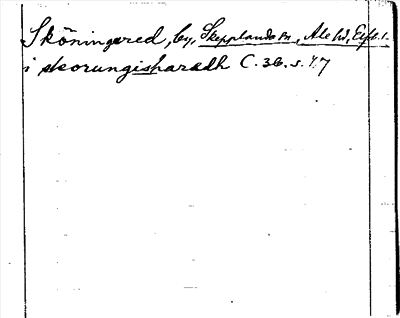 Sköningared, by, Skepplanda sn, Ale hd, Elfsb. l.
i skorungisharadh C. 36. s. 47